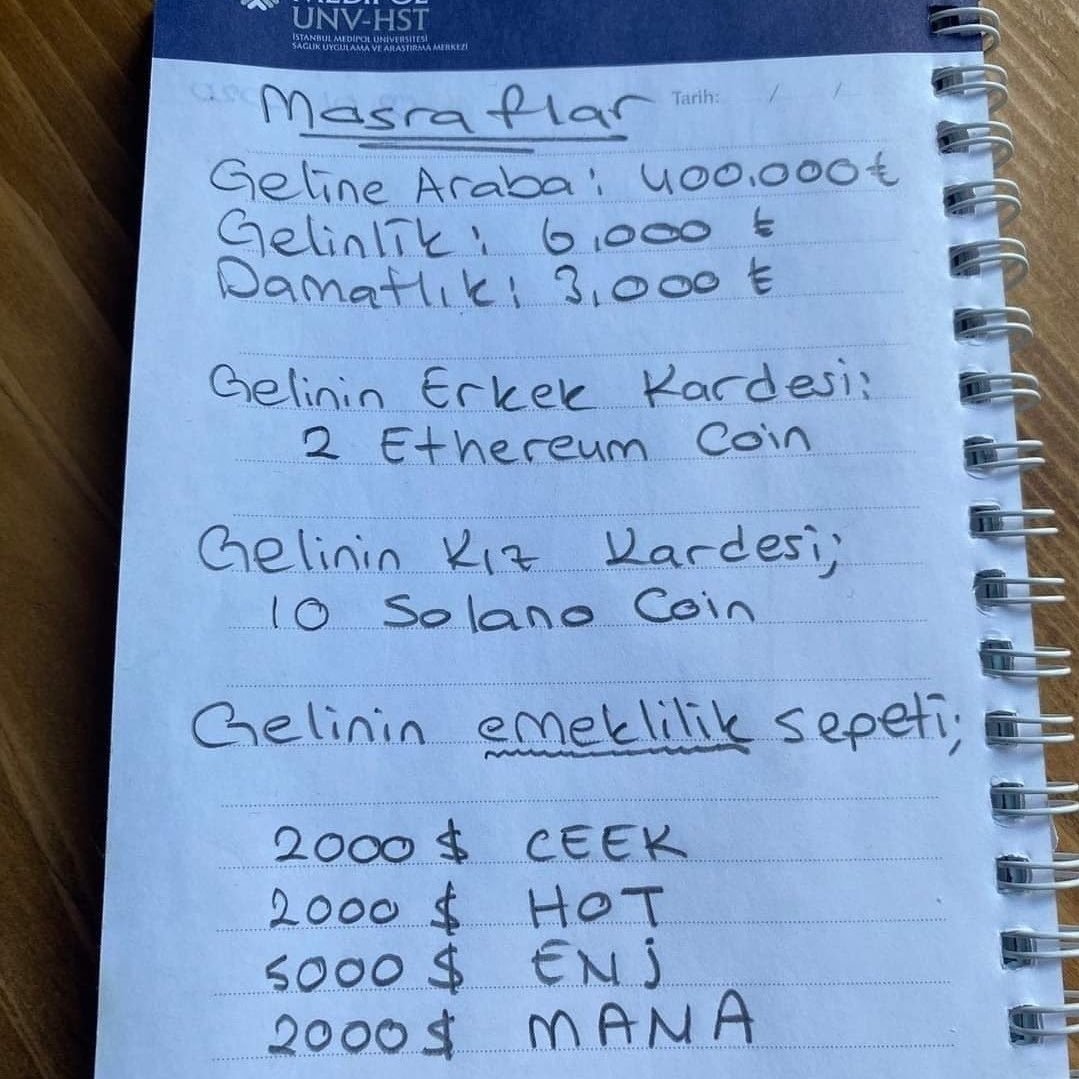 MEDİPOL
UNV-HST
İSTANBUL MEDİPOL ÜNİVERSİTESİ
SAĞLIK UYGULAMA VE ARAŞTIRMA MERKEZİ
Masraflar
Tarih: / /
Geline Araba: 400.000 ₺
Gelinlik: 6.000 ₺
Damatlık: 3.000 ₺
Gelinin Erkek Kardesi:
2 Ethereum Coin
Gelinin Kız Kardesi;
10 Solano Coin
Gelinin emeklilik sepeti;
2000 $ CEEK
2000 $ HOT
5000 $ ENJ
2000 $ MANA